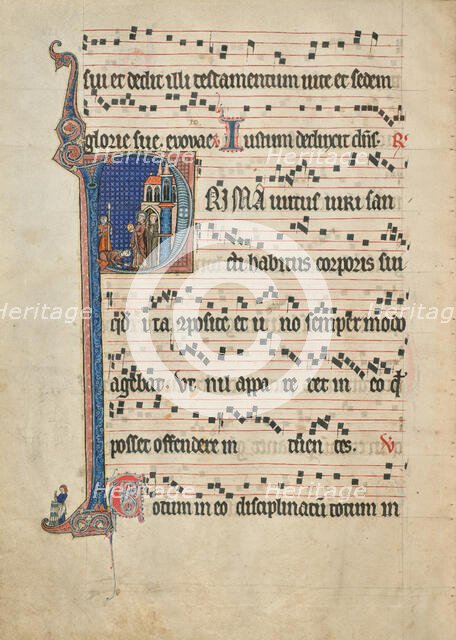 sui et dedit illi testamentum uite et sedem
glorie sue. evovae. Iustum deduxit dñs. R
PRIMA uirtus uiri san
cti habitus corporis sui
ita cposite et u no semper modo
agebat. Vt nil appa re ret in eo q̃
posset offendere in tuen tes. V
Totum in eo disciplinatũ totum in
Heritage
Heritage
Heritage
Heritage
Heritage
Heritage